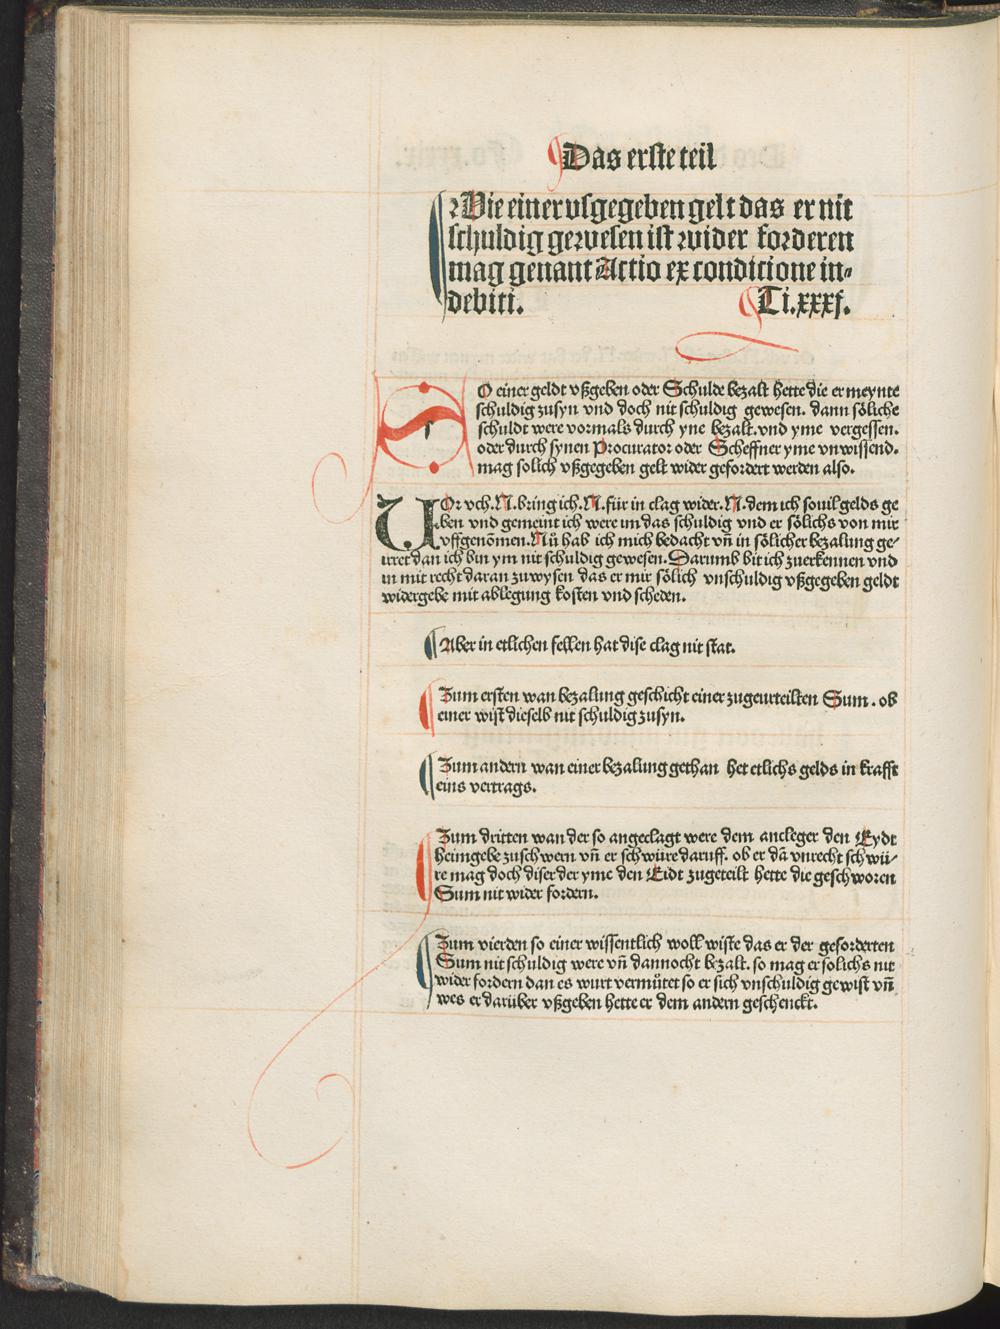 Das erste teil
Wie einer vsgegeben gelt das er nit
schuldig gewesen ist wider forderen
mag genant Actio ex conditione in-
debiti. Ti.xxxj.
SO einer geldt vßgeben oder Schulde bezalt hette die er meynte
schuldig zusyn vnd doch nit schuldig gewesen. dann söliche
schuldt were vormals durch yne bezalt. vnd yme vergessen.
oder durch synen Procurator oder Scheffner yme vnwissend.
mag solich vßgegeben gelt wider gefordert werden also.
VOr vch. N. bring ich. N. für in clag wider. N. dem ich souil gelds ge
ben vnd gemeint ich were im das schuldig vnd er sölichs von mir
vffgenōmen. Nů hab ich mich bedacht vn̄ in sölicher bezalung ge-
irret dan ich bin ym nit schuldig gewesen. Darumb bit ich zuerkennen vnd
in mit recht daran zuwysen das er mir sölich vnschuldig vßgegeben geldt
widergebe mit ablegung kosten vnd scheden.
Aber in etlichen fellen hat dise clag nit stat.
Zum ersten wan bezalung geschicht einer zugeurteilten Sum. ob
einer wist dieselb nit schuldig zusyn.
Zum andern wan einer bezalung gethan het etlichs gelds in krafft
eins vertrags.
Zum dritten wan der so angeclagt were dem ancleger den Eydt
heimgebe zuschwern vn̄ er schwüre daruff. ob er dā vnrecht schwü-
re mag doch diser der yme den Eidt zugeteilt hette die geschworen
Sum nit wider fordern.
Zum vierden so einer wissentlich woll wiste das er der geforderten
Sum nit schuldig were vn̄ dannocht bezalt. so mag er solichs nit
wider fordern dan es wurt vermůtet so er sich vnschuldig gewist vn̄
wes er darüber vßgeben hette er dem andern geschenckt.